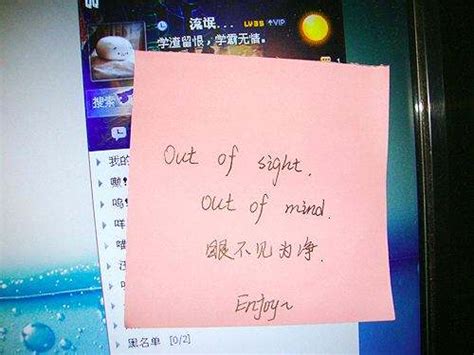 QQ
流氓... LV35 VIP
学渣留恨，学霸无情。
搜索
我的
嘿!
呜!
咩
喵
Out of sight.
Out of mind.
眼不见为净.
Enjoy~
黑名单 [0/2]